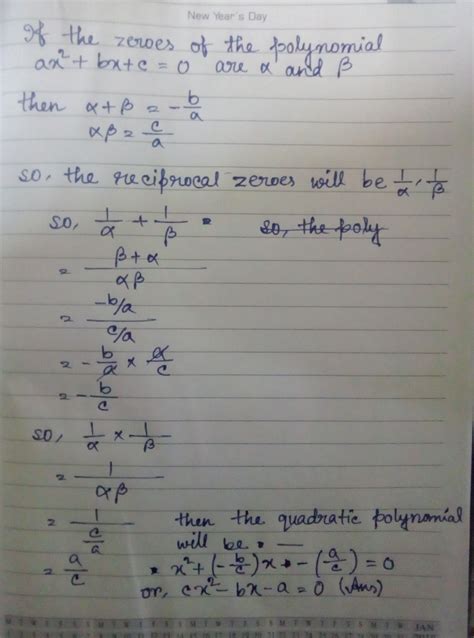 New Year's Day
If the zeroes of the polynomial
ax² + bx + c = 0 are α and β
then α + β = - b/a
αβ = c/a
so, the reciprocal zeroes will be 1/α, 1/β
so, 1/α + 1/β = so, the poly
= β + α / αβ
= -b/a / c/a
= - b/a × a/c
= - b/c
so, 1/α × 1/β
= 1/αβ
= 1 / c/a then the quadratic polynomial
will be
= a/c x² + (- b/c)x - (a/c) = 0
or, cx² - bx - a = 0 (Ans)
JAN